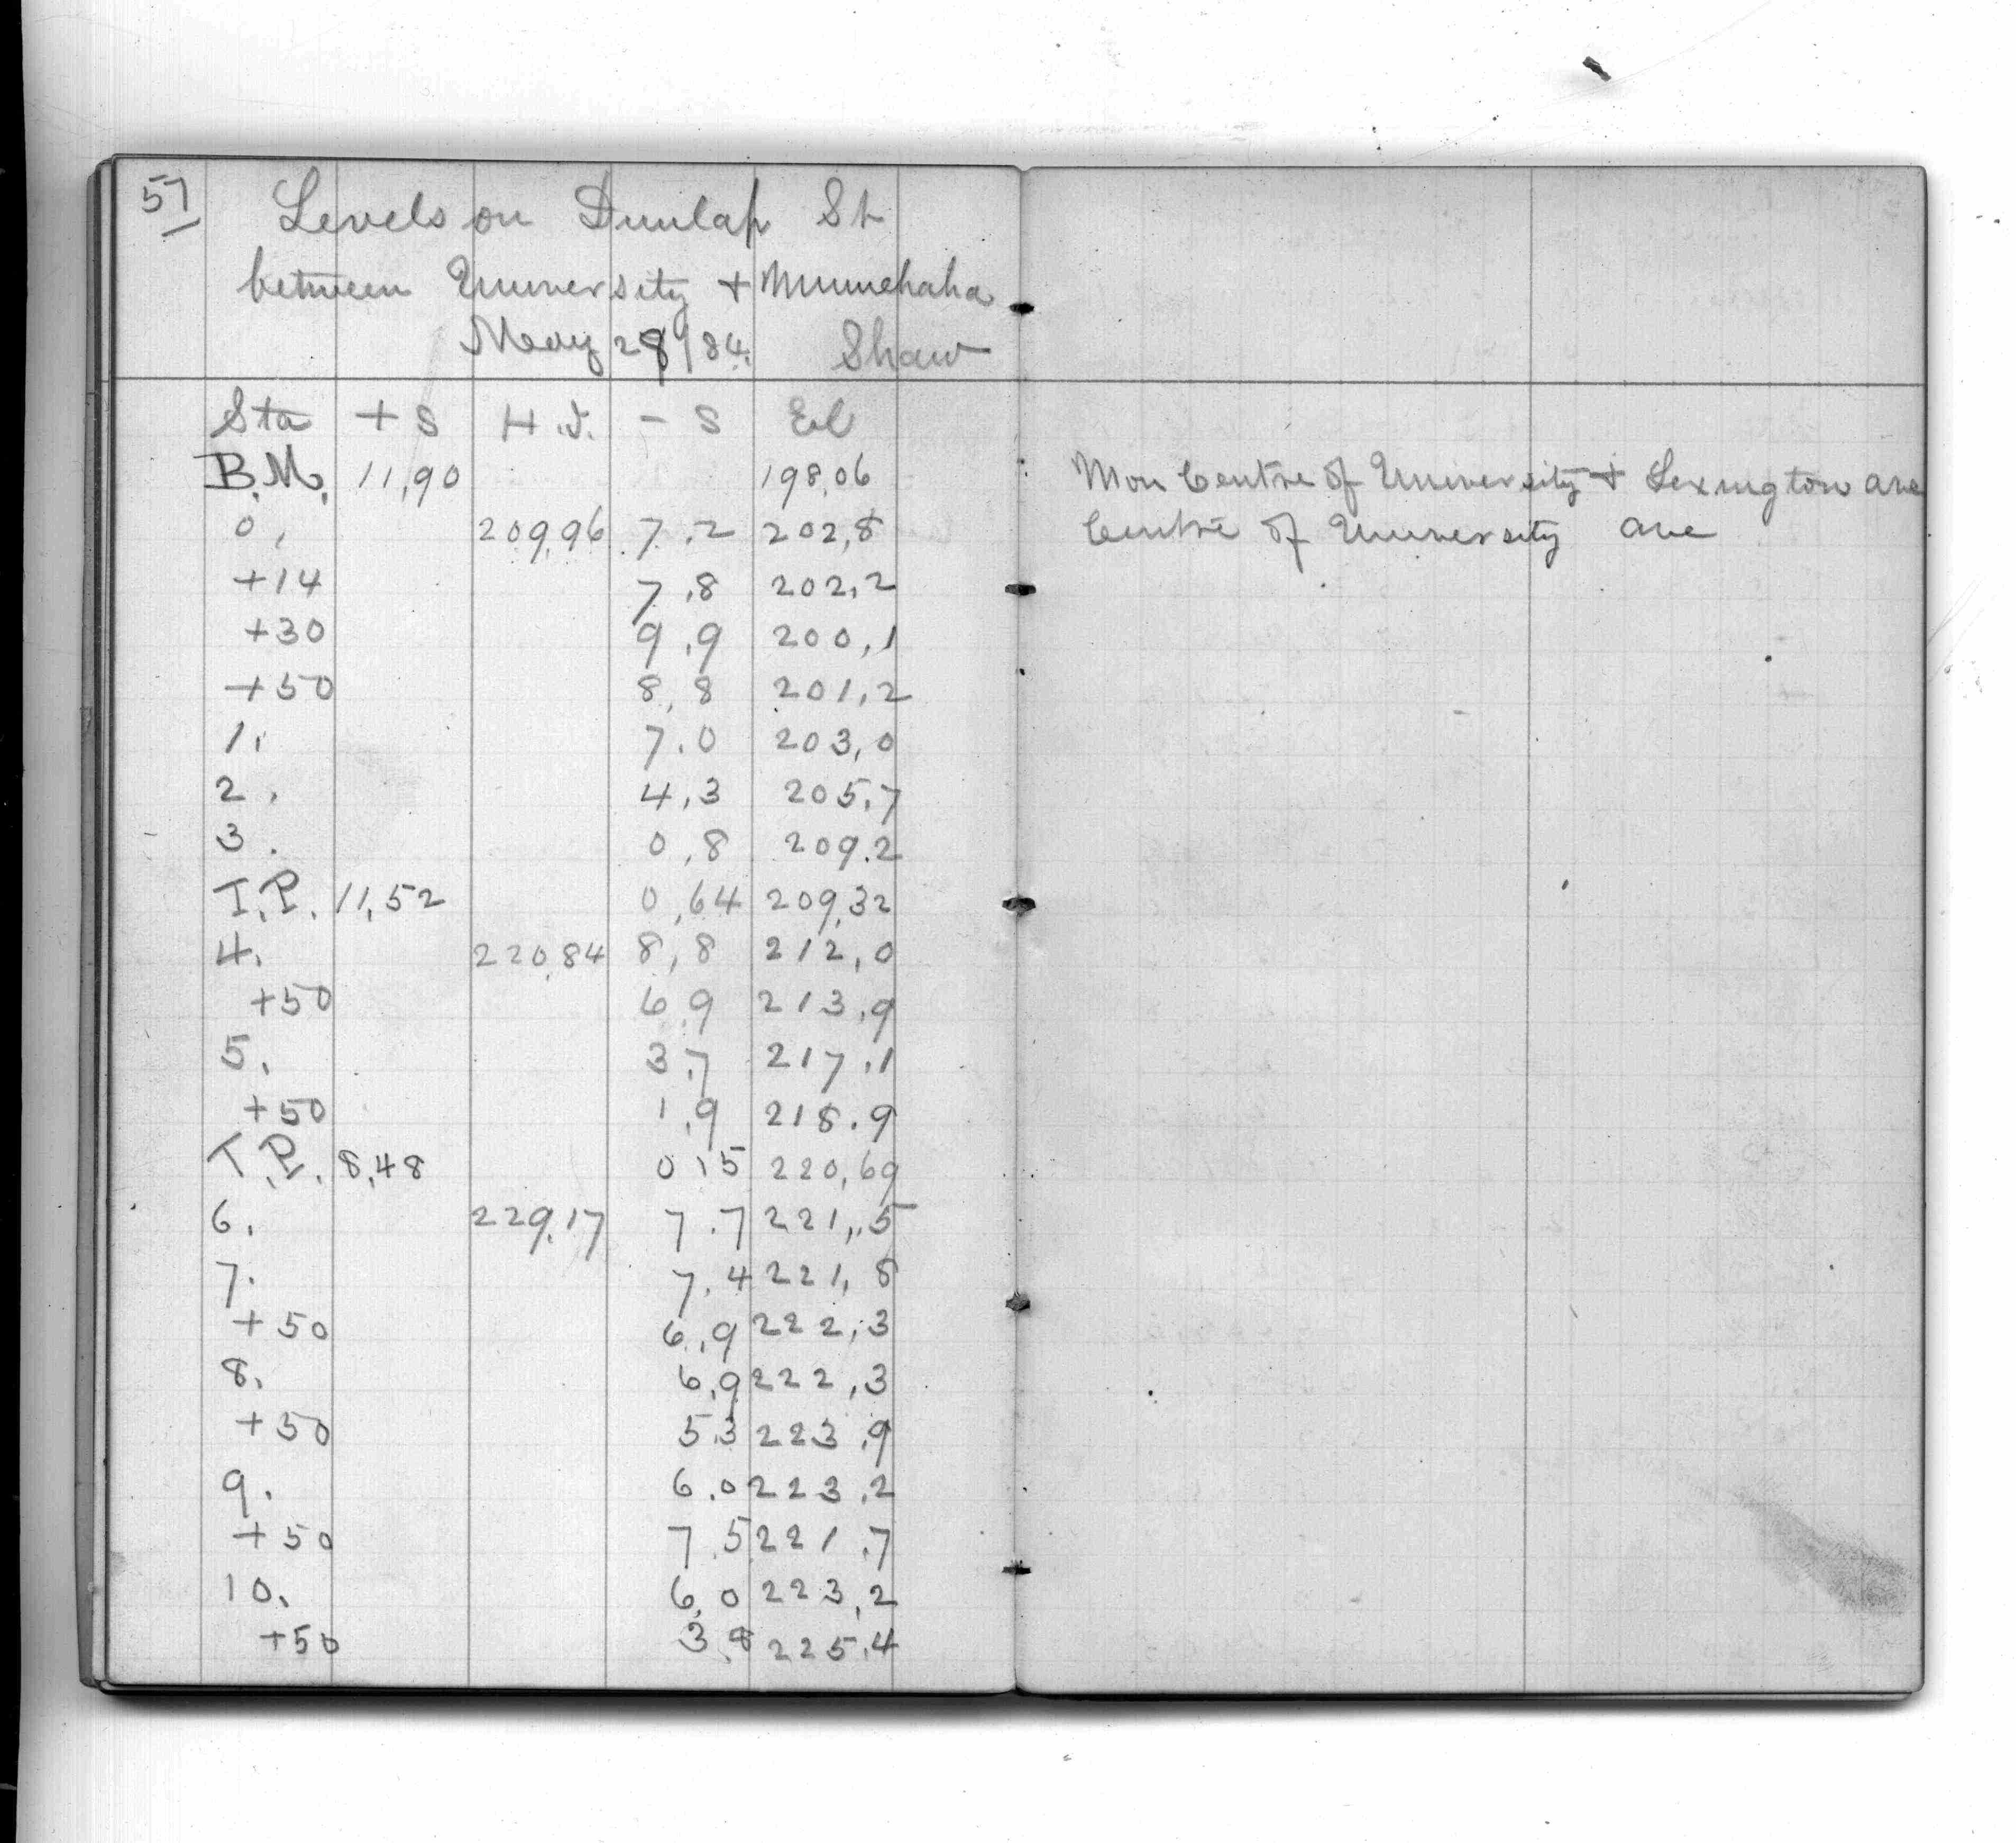 57
Levels on Dunlap St
between University + Minnehaha
May 28/84. Shaw
Sta + S H.I. - S El
B.M. 11,90 198,06 Mon Centre of University + Lexington ave
0, 209,96 7.2 202,8 Centre of University ave
+14 7,8 202,2
+30 9,9 200,1
+50 8,8 201,2
1. 7.0 203,0
2. 4,3 205,7
3. 0,8 209.2
T.P. 11,52 0,64 209,32
4. 220,84 8,8 212,0
+50 6,9 213,9
5. 3,7 217,1
+50 1,9 218.9
T.P. 8,48 0 15 220,69
6. 229,17 7.7 221,5
7. 7,4 221,8
+50 6,9 222,3
8. 6,9 222,3
+50 5,3 223,9
9. 6.0 223,2
+50 7,5 221,7
10. 6,0 223,2
+50 3,8 225,4